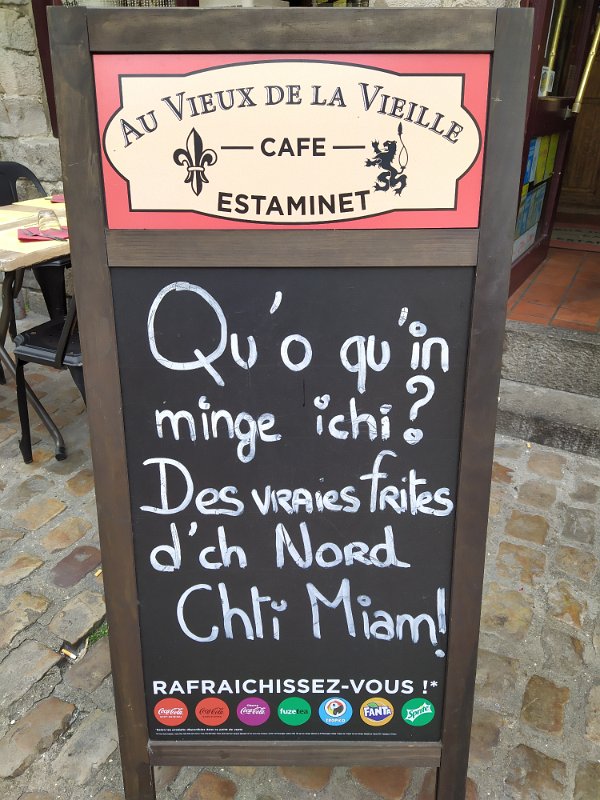 AU VIEUX DE LA VIEILLE
CAFE
ESTAMINET
Qu'o qu'in
minge ichi?
Des vraies frites
d'ch Nord
Chti Miam!
RAFRAICHISSEZ-VOUS !*
Coca-Cola Coca-Cola Coca-Cola fuzetea TROPICO FANTA Sprite